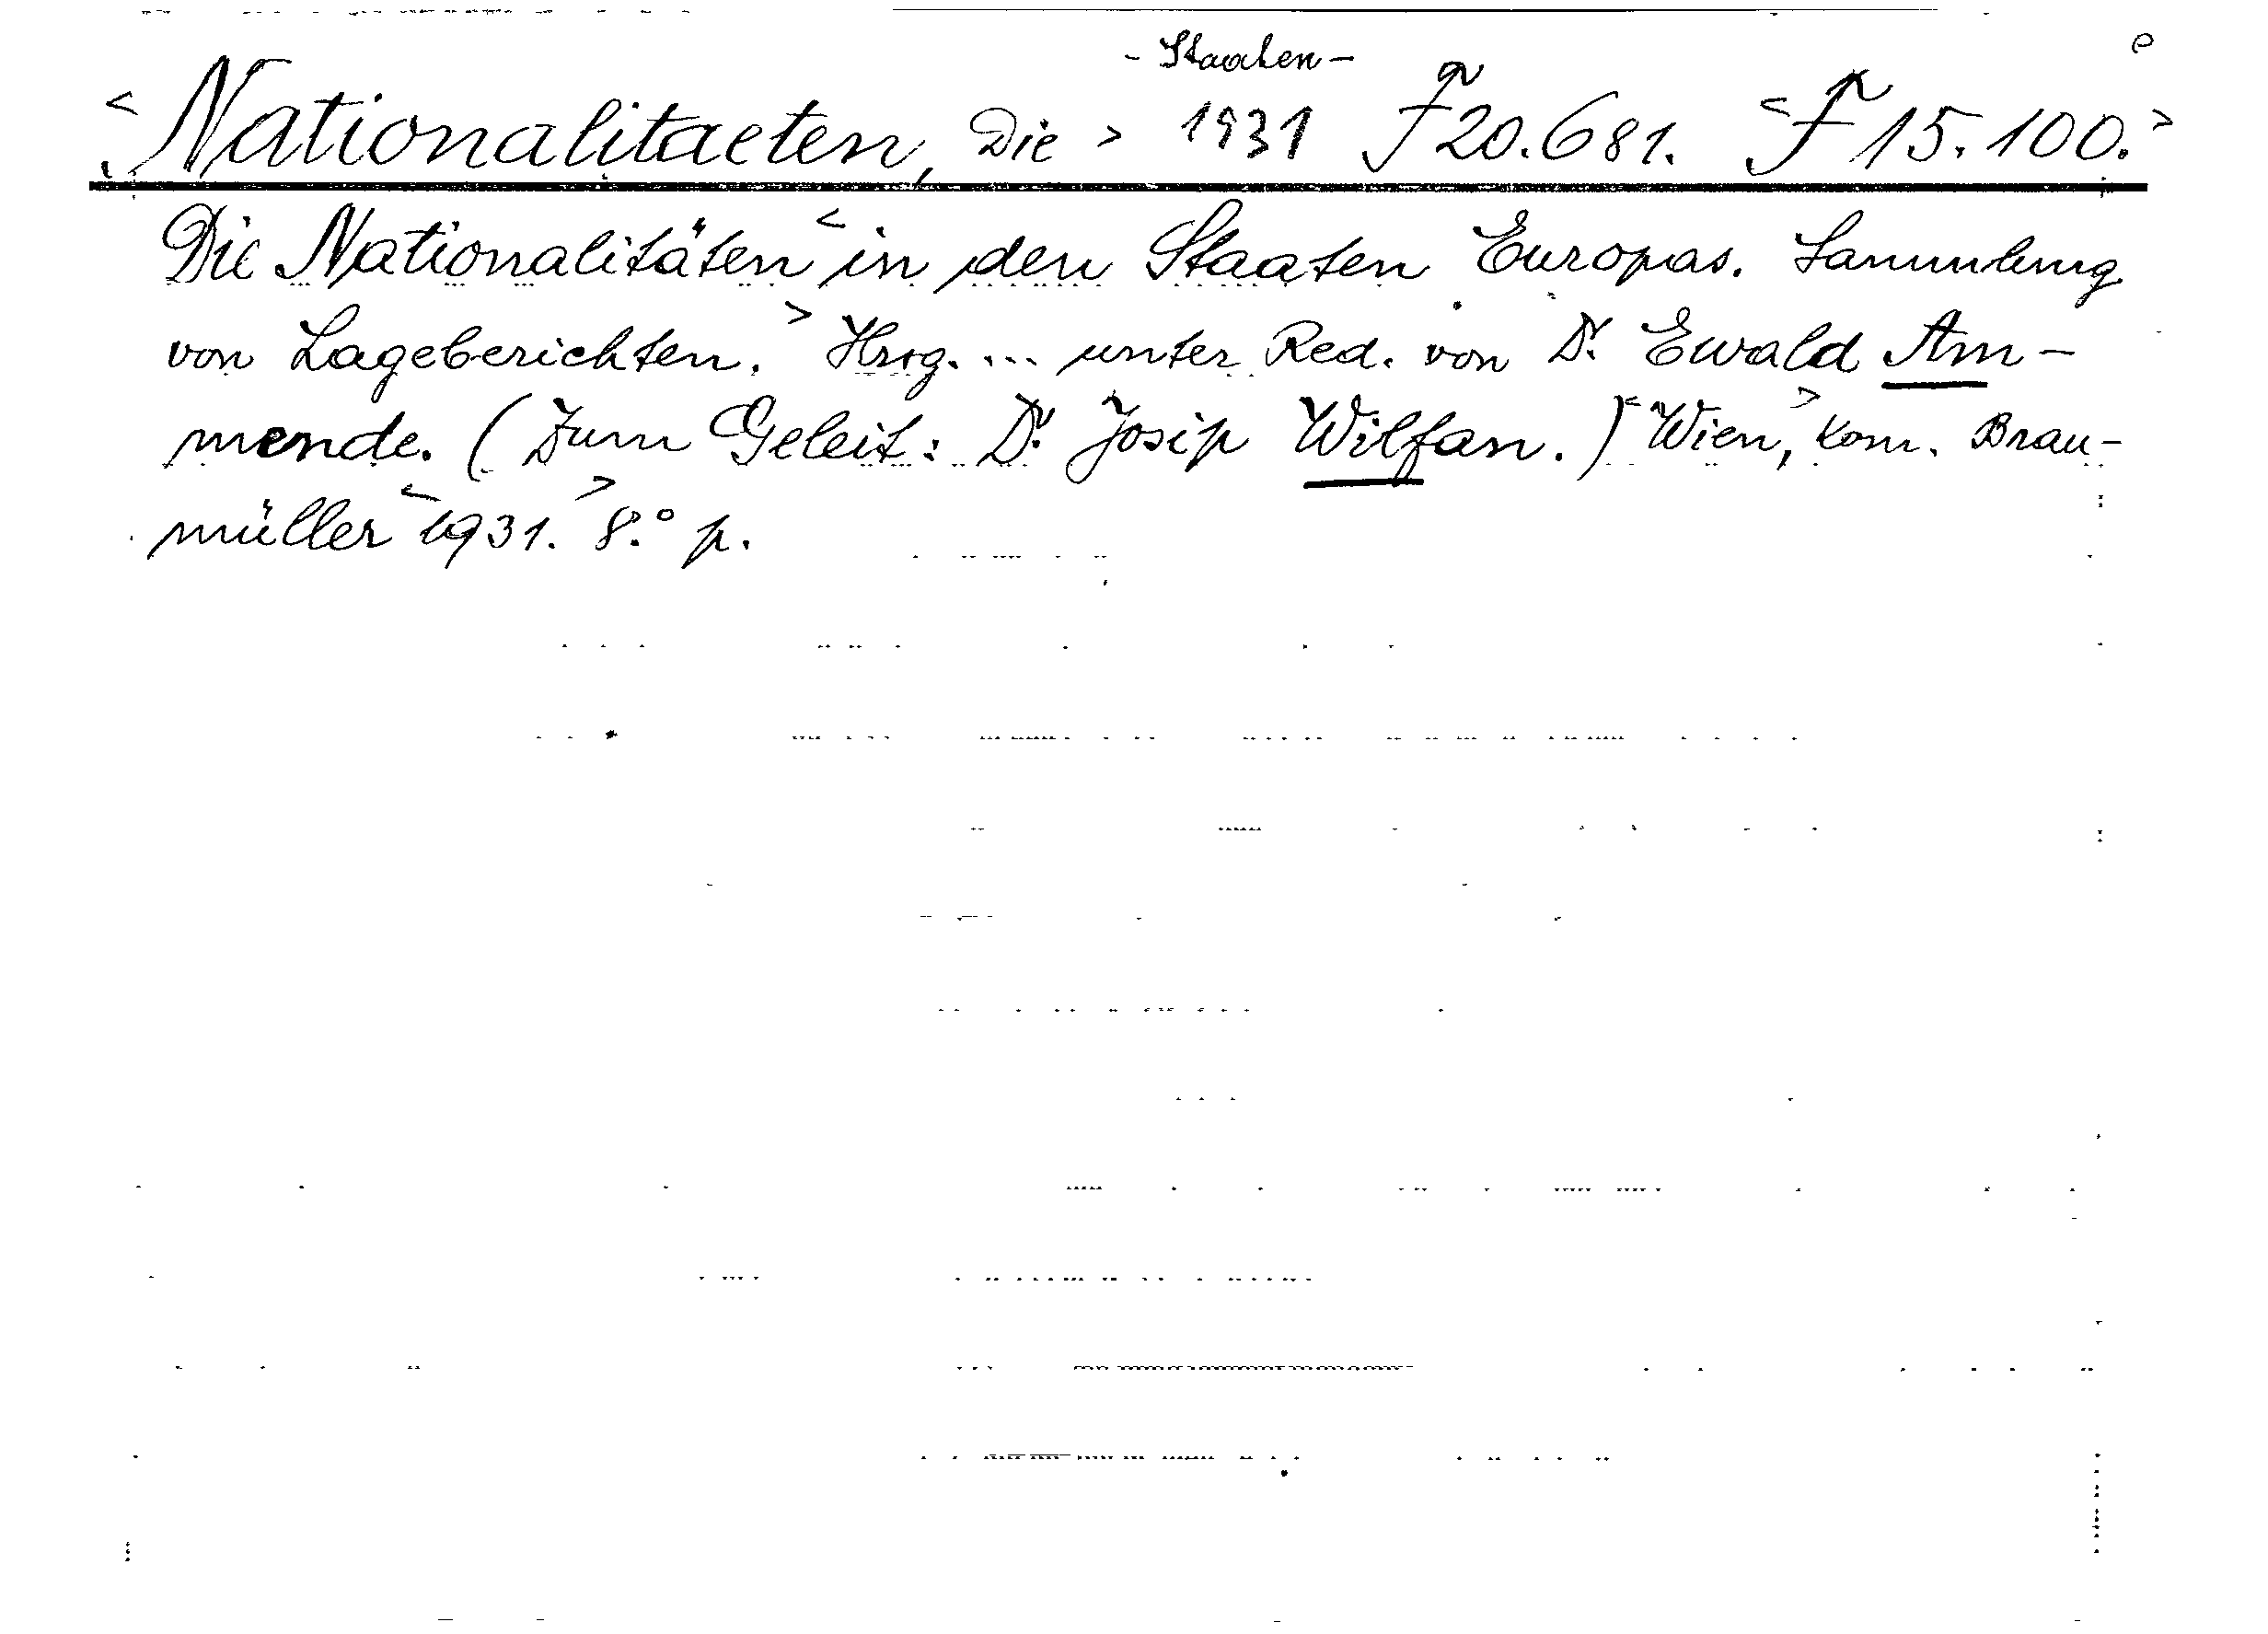 - Staaten -
e
< Nationalitaeten, Die > 1931 F 20.681. < F 15.100. >
Die Nationalitäten < in den Staaten Europas. Sammlung
von Lageberichten. > Hrsg. ... unter Red. von Dr. Ewald Am-
mende. (Zum Geleit: Dr. Josip Wilfan.) < Wien, > Kom. Brau-
müller < 1931. > 8.° p.